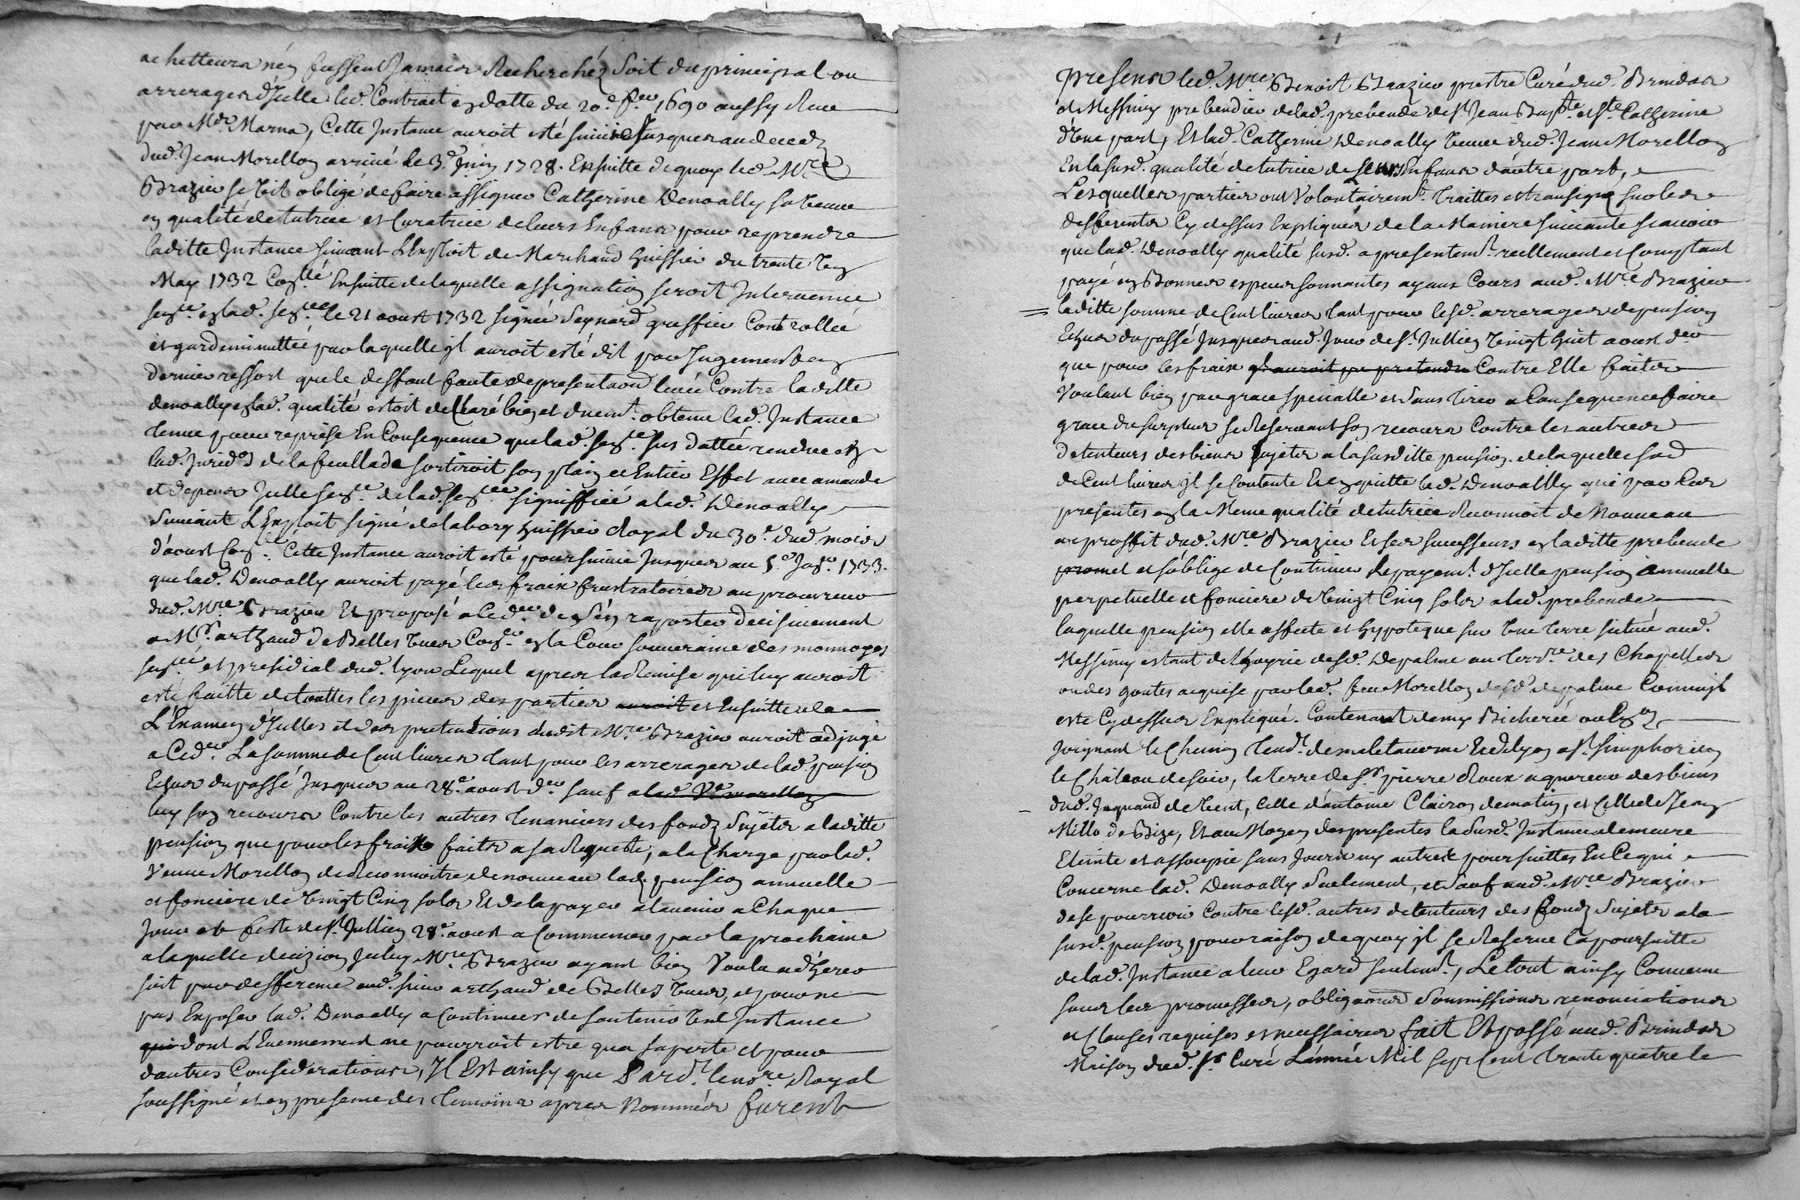 achetteurs n'en fussent jamais recherchéz soit du principal ou
arrerages d'Icelle led. Contract en datte du 20e fev 1690 aussy Receu
par Me Marna, Cette Instance auroit esté suivie Jusques au deced
dud. Jean Morellon arrivé le 3e Juin 1728. Ensuitte de quoy led. Mre
Brazier se vit obligé de faire assigner Catherine Denoally sa veuve
en qualité de tutrice et Curatrice de leurs Enfans pour reprendre
laditte Instance suivant L'Exploit de Marchand huissier du trente
May 1732 Ensuitte de laquelle assignation seroit Intervenüe
le 21 aoust 1732 signée Seynard greffier Controllée
et gardeminuttee par laquelle il auroit esté dit par Jugement en
dernier ressort que le deffaut faute de presentaõn Contre laditte
denoally en lad. qualité estoit declaré bien et duemt. obtenu lad. Instance
tenue pour reprise En Consequence que lad. sus dattée rendue en
lad. Juridõn de la feuillade sortiroit son plain et Entier Effet avec amande
et depens Icelle de lad. signiffiée a lad. Denoally
suivant L'Exploit signé delabory huissier Royal du 30e dud. mois
d'aoust Cette Instance auroit esté poursuivie Jusques au 5e 1733.
que lad. Denoally auroit payé les fraix frustratoires au procureur
dud. Mre Brazier Et proposé a Cedr de s'en raporter decisivement
a Mr arthaud de Bellevue Consr en la Cour souveraine des monnoyes
et presidial dud. lyon Lequel apres la Remise qui luy auroit
esté faitte de touttes les pieces des parties auroit et Ensuitte de
L'Examen d'Icelles et des pretentions dudit Mre Brazier auroit adjugé
a Cedr La somme de Cent livres tant pour les arrerages de lad. pension
Echus du passé Jusques au 28e aoust der sauf a lad. Ve morellon
luy son recours Contre les autres tenanciers des fondz sujets a laditte
pension que pour les fraix faits a sa Requeste, a la Charge par lad.
Veuve Morellon de Reconnoitre de nouveau lad. pension annuelle
et fonciere de vingt Cinq sols Et de la payer a l'avenir a Chaque
Jour et feste de St. Jullien 28e aoust a Commencer par la prochaine
a laquelle decizion Iceluy Mre Brazier ayant bien Voulu adherer
soit par defference aud. sieur arthaud de Bellevue, et pour ne
pas Exposer lad. Denoally a Continuer de soutenir une Instance
qui dont L'Evennement ne pourroit estre qua sa perte et pour
dautres Considerations, Il Est ainsy que Pardt. le nore Royal
soussigné et en presence des temoins apres Nommés furent
presens led. Mre Benoit Brazier prestre Curé dud. Brindas
et Messimy prebendier de lad. prebende de St Jean Bapte et Ste Catherine
d'une part, Et lad. Catherine Denoally veuve dud. Jean Morellon
En la susd. qualité de tutrice de ses Enfans d'autre part,
Lesquelles parties ont Volontairemt. traittés et transigé sur les
differents Cy dessus Expliqués de la Maniere suivante scavoir
que lad. Denoally qualité susd. a presentemt. reellement et Comptant
payé en Bonnes especes sonnantes ayans Cours aud. Mre Brazier
laditte somme de Cent livres tant pour lesd. arrerages de pension
Echus du passé Jusques aud. Jour de St. Jullien vingt huit aoust der
que pour les fraix qu'il auroit pu pretendre Contre Elle faits
Voulant bien par grace specialle et sans tirer a Consequence faire
grace du surplus se Reservant son recours Contre les autres
detenteurs des biens sujets a la susditte pension de laquelle sud
de Cent livres il se Contente Et en quitte lad. Denoally qui par Ces
presentes en la Même qualité de tutrice Reconnoit de Nouveau
au proffit dud. Mre Brazier Et ses successeurs en laditte prebende
promet et s'oblige de Continuer le payemt. d'Icelle pension annuelle
perpetuelle et fonciere de vingt Cinq sols a lad. prebende
laquelle pension elle affecte et hypoteque sur une terre scituée aud.
Messimy estant de l'hoyrie desd. Depalme au terre des Chapelles
ou des goutes acquise par led. feu Morellon desd. depalme Comme il
est Cy dessus Expliqué. Contenant demy Bicherée ou Env.
Joignant le Chemin tendt. de maletaverne Et de lyon a St. simphorien
le Château de soir, la terre de Sr. pierre Roux acquereur des biens
dud. Juquand de vent, Celle d'antoine Clairon de matin, et Celle de Jean
Millo de Bize, Et au Moyen des presentes la susd. Instance demeure
Eteinte et assoupie sans Jours ny autres poursuittes En Ce qui
Concerne lad. Denoally seulement, et sauf aud. Mre Brazier
de se pourvoir Contre lesd. autres detenteurs des fondz sujets a la
susd. pension pour raison de quoy il se Reserve la poursuitte
de lad. Instance a leur Egard seulemt., Le tout ainsy Convenu
sous les promesses, obligations soumissions renonciations
et Clauses requises et necessaires fait Et passé aud. Brindas
Maison dud. Sr. Curé L'année Mil sept Cent trente quatre le